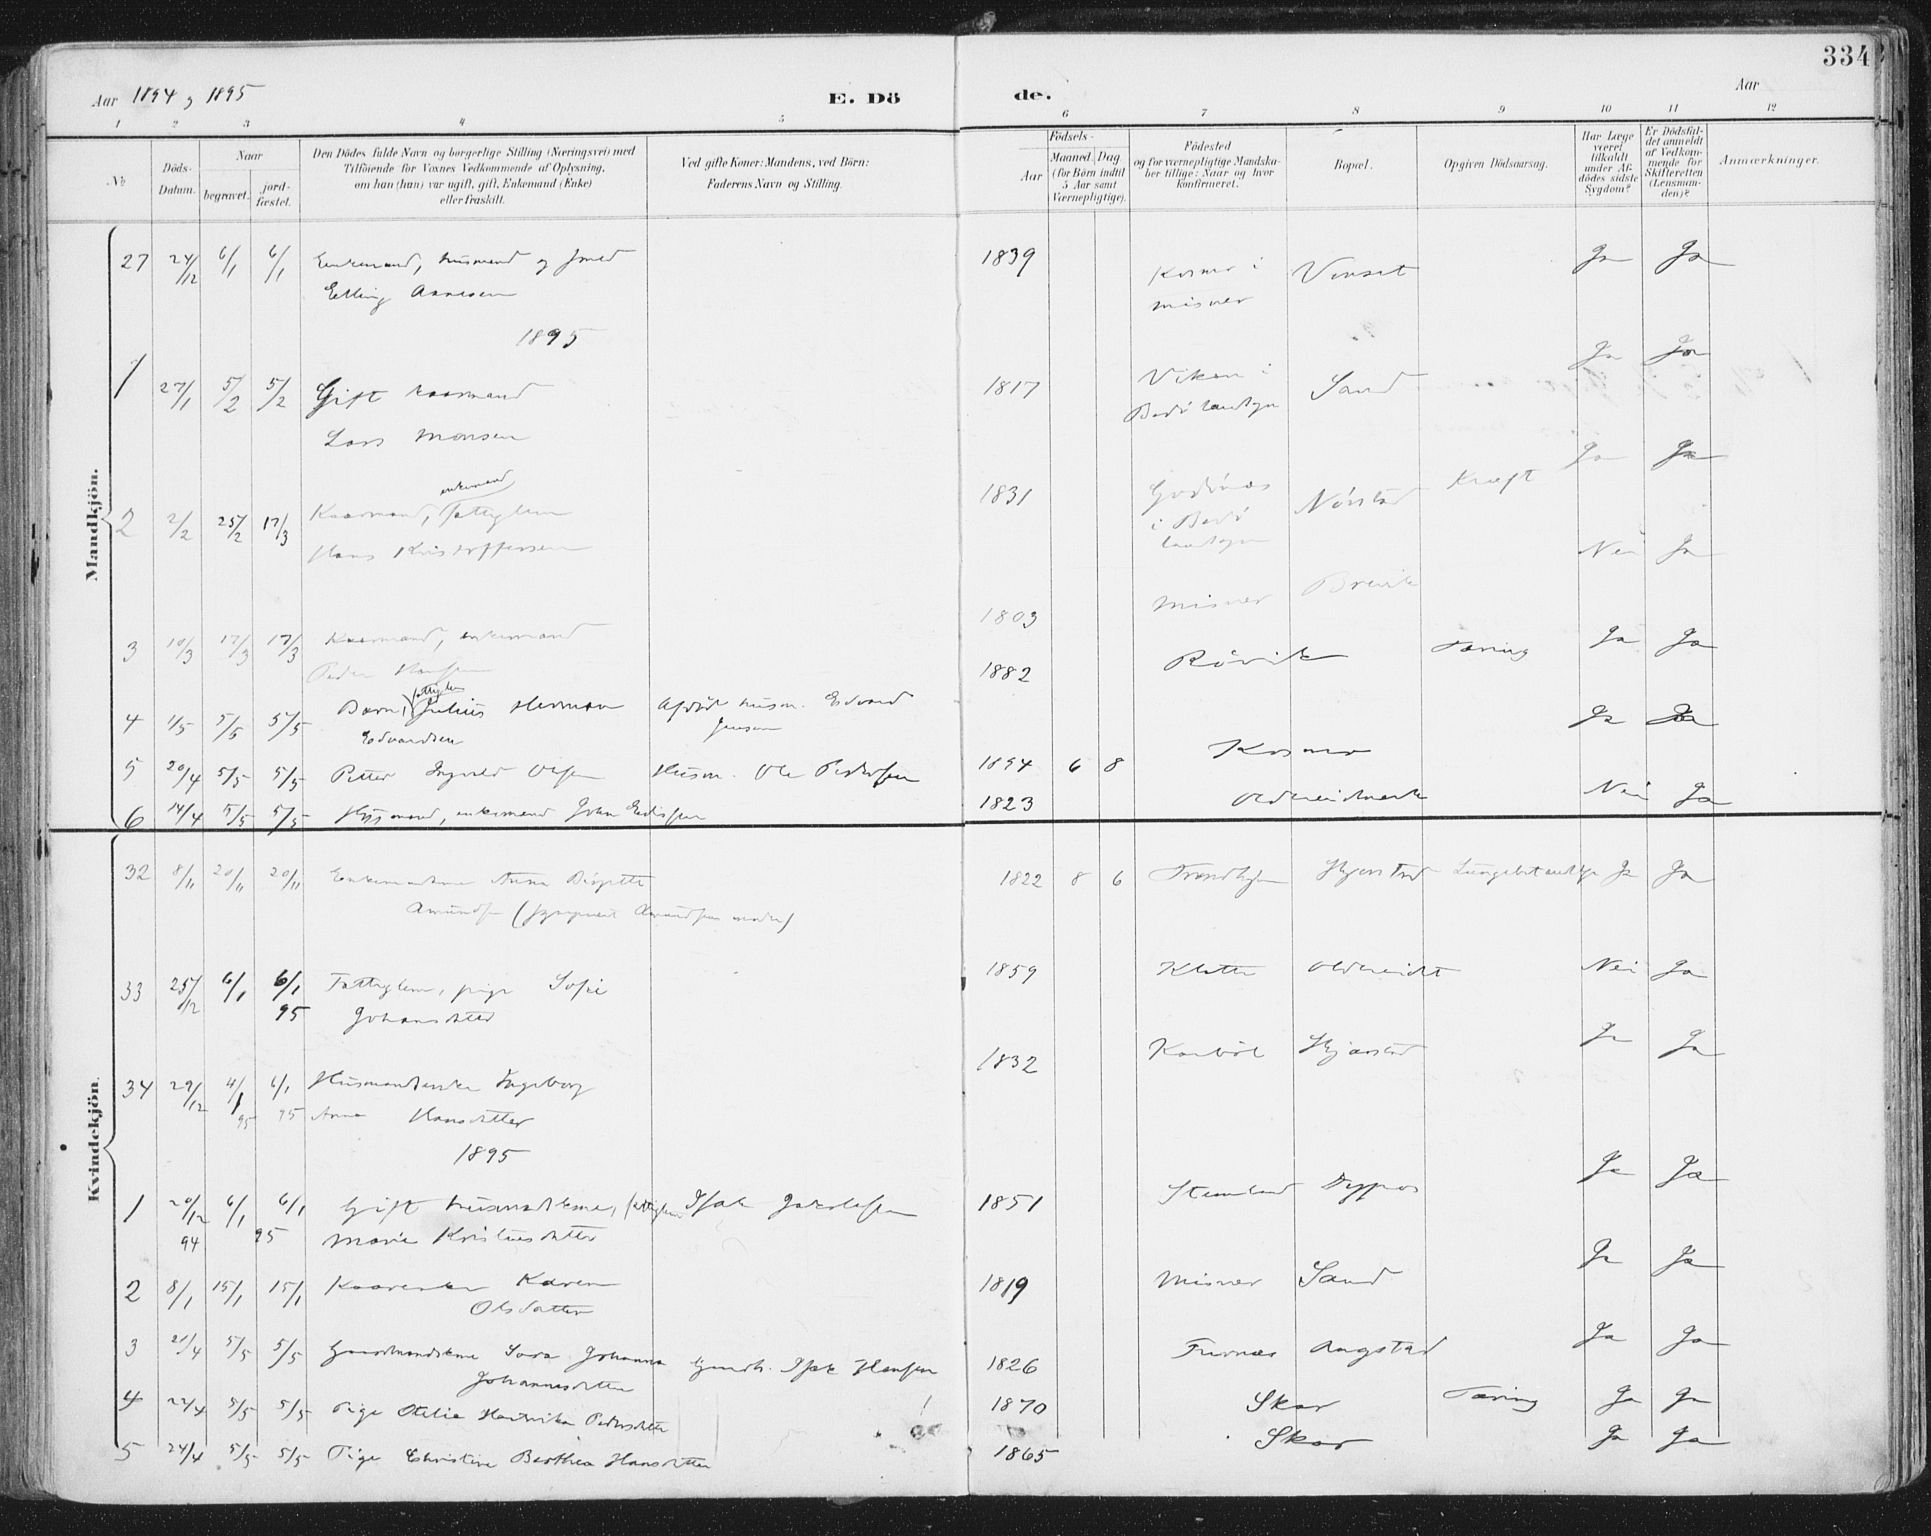 334
Aar 1894 og 1895
E. Dö
de.
Aar
1 2 3 4 5 6 7 8 9 10 11 12
No
Döds-Datum.
Naar
begravet.
jordfæstet.
Den Dödes fulde Navn og borgerlige Stilling (Næringsvei) med
Tilföiende for Voxnes Vedkommende af Oplysning,
om han (hun) var ugift, gift, Enkemand (Enke)
eller fraskilt.
Ved gifte Koner: Mandens, ved Börn:
Faderens Navn og Stilling.
Födsels-
Aar
Maaned. Dag
(for Börn indtil
5 Aar samt
Værnepligtige).
Födested
og for værnepligtige Mandskaber tillige: Naar og hvor
konfirmeret.
Bopæl.
Opgiven Dödsaarsag.
Har Læge
været
tilkaldt
under Afdödes sidste
Sygdom?
Er Dödsfaldet anmeldt
af Vedkommende for
Skifteretten
(Lensmanden)?
Anmærkninger.
Mandkjön.
27 24/12 6/1 6/1 Enkemand, husmand og smed 1839 Kosmo i Venset Ja Ja
Elling Arnesen misvær
1895
1 27/1 5/2 5/2 Gift kaarmand 1817 Viken i Sand Ja Ja
Lars Monsen Bodö landsogn
enkemand
2 2/2 25/2 17/3 Kaarmand, Fattiglem 1831 Godönes Nörstad Kræft Ja Ja
Hans Kristoffersen i Bodö
landsogn
3 10/3 17/3 17/3 Kaarmand, enkemand 1803 Misvær Brevik Nei Ja
Peder Hansen
fattiglem
4 1/5 5/5 5/5 Barn, Julius Herman Afdöd husm. Edvard 1882 Rövik Tæring Ja Ja
Edvardsen Jensen
5 20/4 5/5 5/5 Petter Ingvald Olsen Husm. Ole Pedersen 1894 6 8 Kosmo Ja Ja
6 14/4 5/5 5/5 Husmand, enkemand John 1823 Nei Ja
Kvindekjön.
32 8/11 20/11 20/11 Anna Birgitte 1822 8 6 Trondhjem Ja Ja
Amundsen
33 25/12 6/1 6/1 Fattiglem, pige Sofie 1859 Kletten Nei Ja
95 Johansdatter
34 29/12 4/1 6/1 Husmandsenke Ingeborg 1832 Ja Ja
95 95 Anna Hansdatter
1895
1 20/12 6/1 6/1 Gift husmandskone, fattiglem Isak Jakobsen 1851 Ja Ja
94 95 Marie
2 8/1 15/1 15/1 Kaarenke Karen 1819 Misvær Sand Ja Ja
Olsdatter
3 21/4 5/5 5/5 Gaardmandskone Sara Johanna Gaardb. Isak Hansen 1826 Furnes Ja Ja
Johannesdatter
4 24/4 5/5 5/5 Pige Otelie Hendrika Pedersdatter 1870 Skar Tæring Ja Ja
5 24/4 5/5 5/5 Pige Christine Berthea Hansdatter 1865 Skar Ja Ja